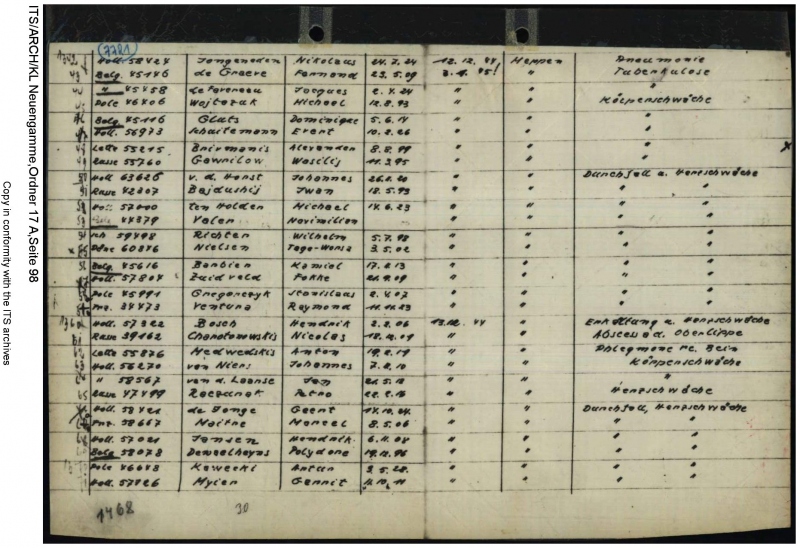 ITS/ARCH/KL Neuengamme,Ordner 17 A,Seite 98
Copy in conformity with the ITS archives
(7781)
Holl. 58424 Jongeneden Nikolaus 24.7.24 12.12.44 Meppen Pneumonie
43 Belg. 45146 de Graeve Fernand 23.5.09 3.1.45! " Tuberkulose
" 45458 de Favereau Jacques 2.4.24 " "
Pole 46406 Wojtczak Michael 12.8.93 " " Körperschwäche
Belg. 45116 Gluts Dominique 5.6.14 " " "
Holl. 56973 Schuitemann Evert 10.2.26 " " "
Lette 55215 Breirmanis Alexander 8.8.99 " " "
Russe 55760 Gawrilow Wasilij 11.3.95 " " "
Holl 63626 v. d. Horst Johannes 26.2.20 " " Durchfall u. Herzschwäche
Russe 42207 Bajdushij Iwan 18.5.93 " " " "
Holl. 57000 ten Holder Michael 14.6.23 " " " "
44379 Valer Maximilian " " " "
59498 Richter Wilhelm 5.7.98 " " " "
Däne 60846 Nielsen Tage-Worsa 3.5.02 " " " "
Belg. 45616 Barbier Kamiel 17.2.13 " " " "
Holl. 57804 Zuidveld Fokke 21.9.09 " " " "
Pole 45991 Gregorczyk Stanislaus 2.4.07 " " " "
Frz. 34473 Ventura Raymond 11.11.23 " " " "
Holl. 57322 Bosch Hendrik 2.2.06 13.12.44 " Erkältung u. Herzschwäche
Russe 39162 Charotonowskis Nicolas 18.12.09 " " Abscess a.d. Oberlippe
Lette 55876 Medwedskis Anton 19.2.19 " " Phlegmone re. Bein
Holl. 56270 van Niers Johannes 7.2.10 " " Körperschwäche
" 58567 van d. Laanse Jan 21.5.18 " " "
65 Russe 47499 Petro " " Herzschwäche
Holl. 58421 de Jonge Geert 14.10.24. " " Durchfall, Herzschwäche
Frz. 38667 Naitre Marcel 8.5.06 " " " "
Holl. 57021 Jansen Hendrik. 6.11.08 " " " "
Belg. 58078 Polydore 19.12.96 " " " "
Pole 46048 Kawecki Antan 3.5.28. " " " "
Holl. 57426 Myler Gerrit 11.10.11 " " " "
1468 30